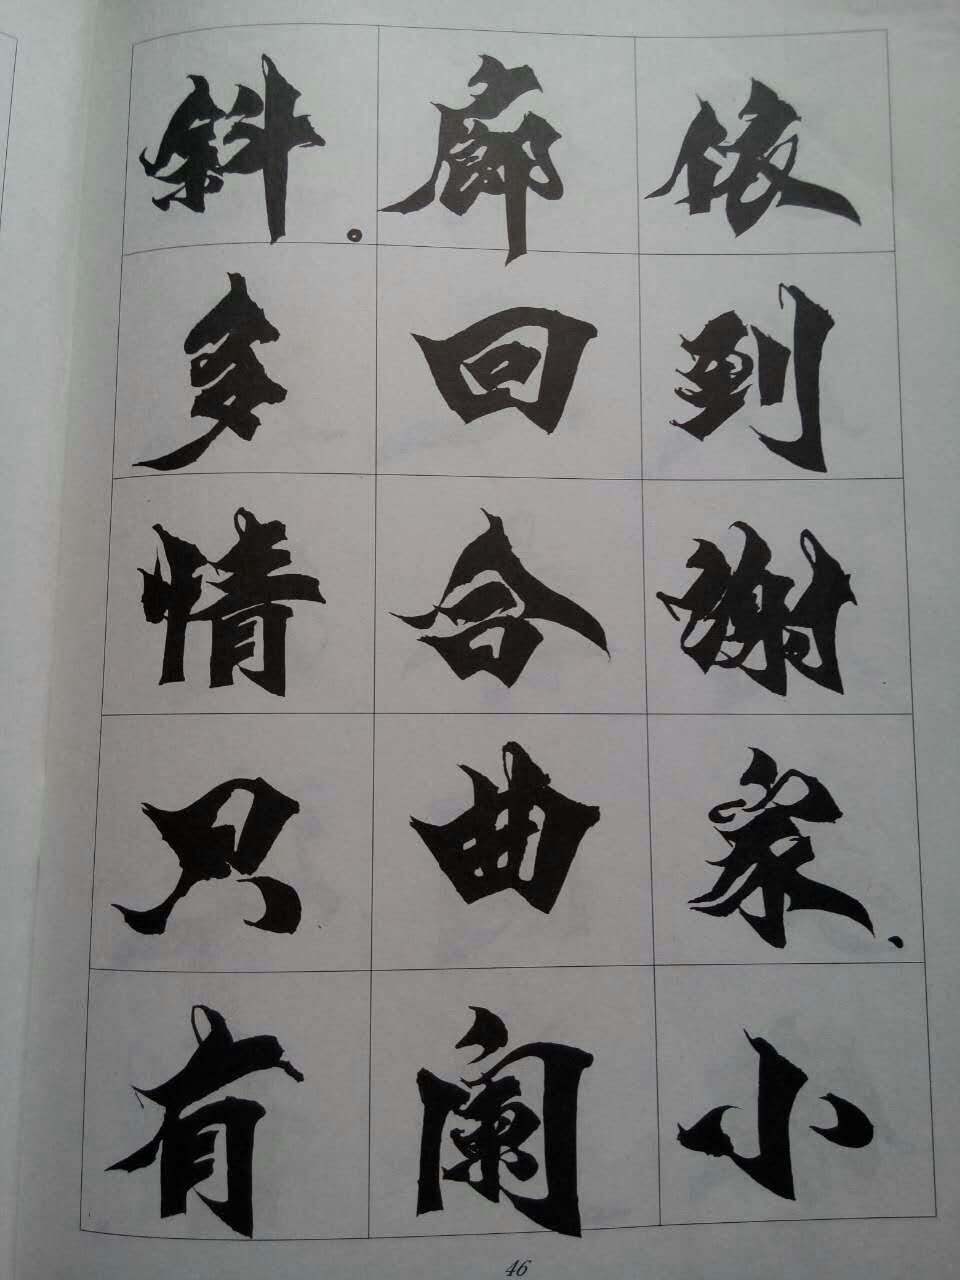 依到谢家，小
廊回合曲阑
斜。多情只有
46